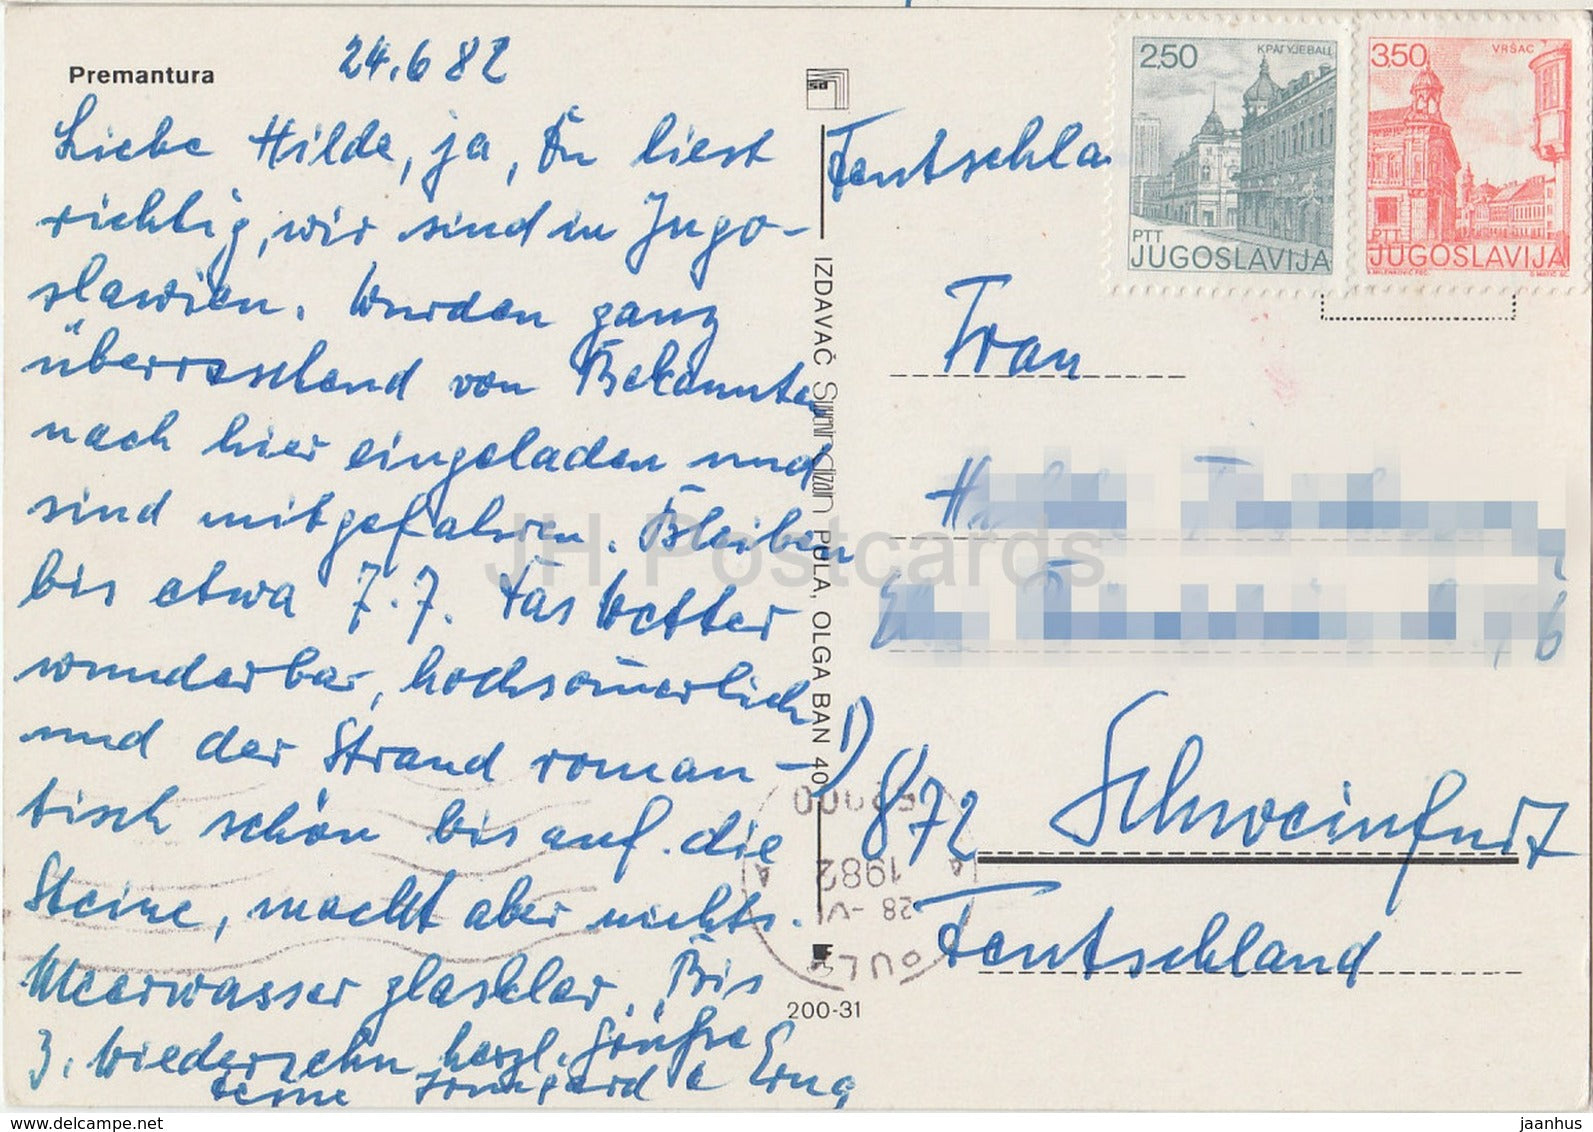 Premantura
24.6 82
Liebe Hilde, ja, Du liest
richtig, wir sind in Jugo-
slawien. Wurden ganz
überraschend von Bekannten
nach hier eingeladen und
sind mitgefahren. Bleiben
bis etwa 7.7. Das Wetter
wunderbar, hochsom̅erlich
und der Strand roman-
tisch schön bis auf die
Steine, macht aber nichts.
Meerwasser glasklar. Bis
z. Wiedersehn herzl. Grüße
Deine Irmgard & Erna
IZDAVAČ PULA, OLGA BAN 40
200-31
2,50 КРАГУЈЕВАЦ
PTT
JUGOSLAVIJA
3,50 VRŠAC
PTT
JUGOSLAVIJA
Deutschla
Frau
872 Schweinfurt
Deutschland
52000
1982
28-VI
JH Postcards
www.delcampe.net
jaanhus